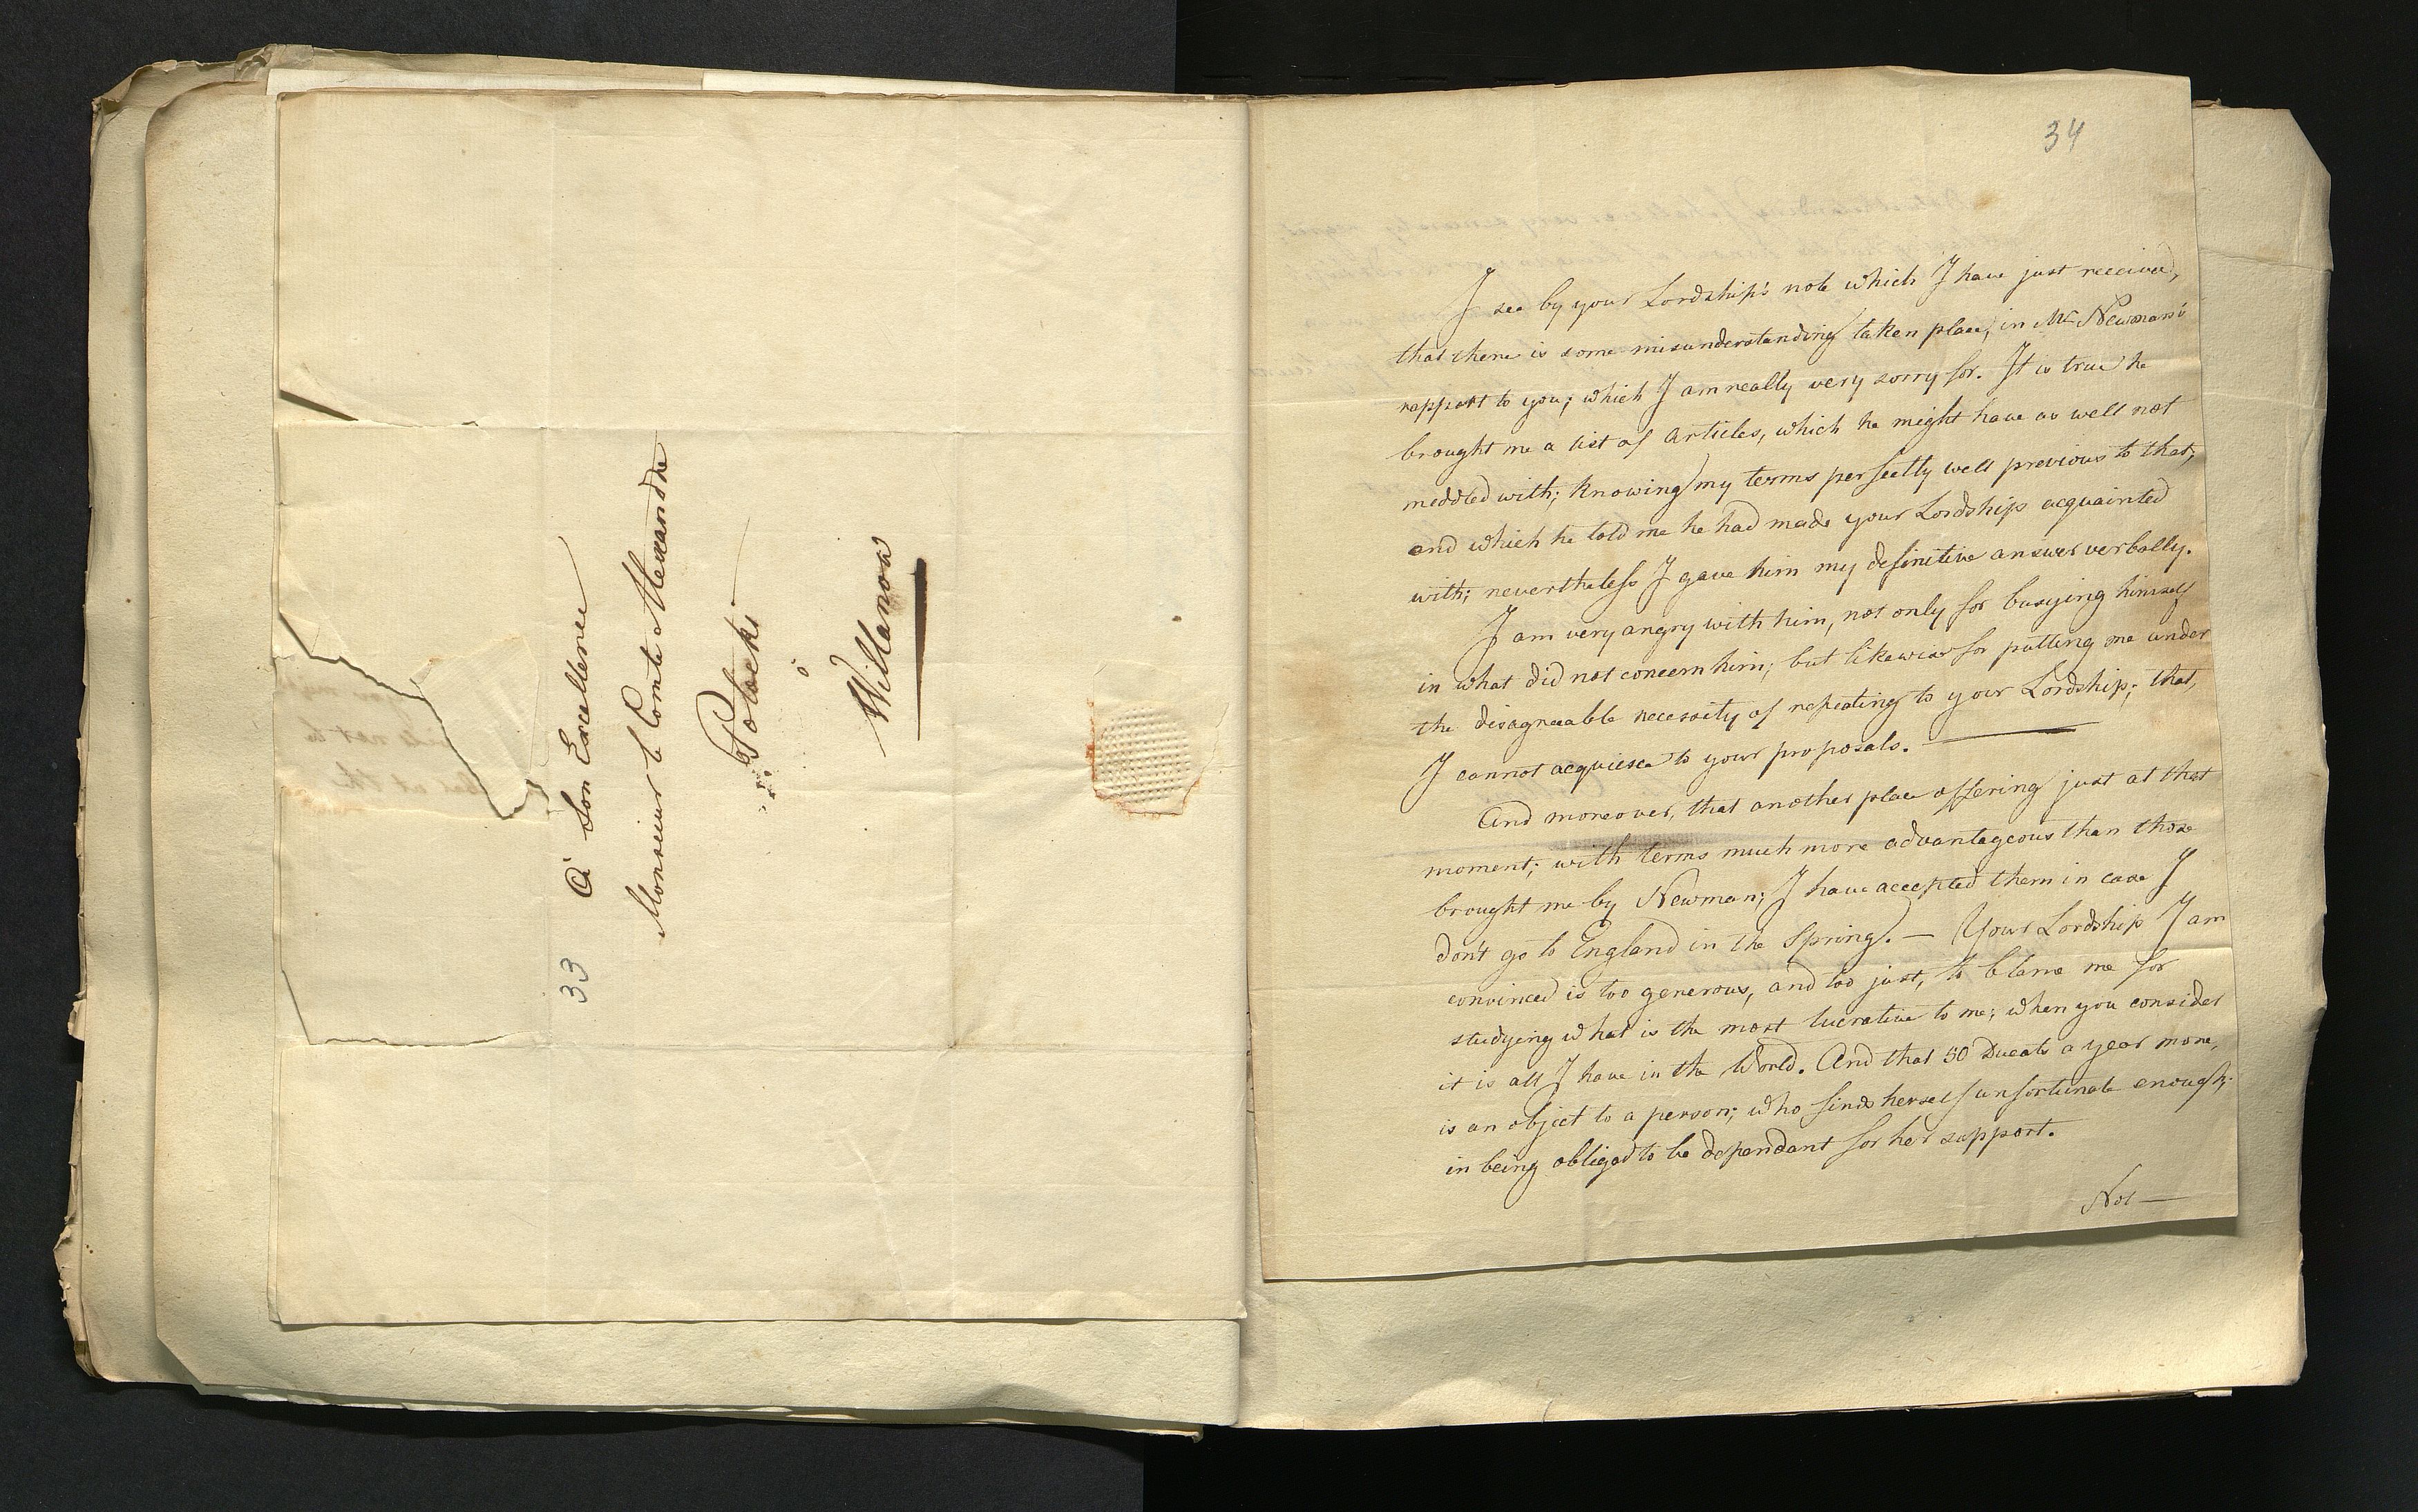 33
À Son Excellence
Monsieur le Comte Alexandre
Potocki
à
Willanow
34
I see by your Lordship's note which I have just received,
that there is some misunderstanding taken place, in Mr. Newman's
rapport to you; which I am really very sorry for. It is true he
brought me a list of articles, which he might have as well not
meddled with; knowing my terms perfectly well previous to that,
and which he told me he had made your Lordship acquainted
with; nevertheless I gave him my definitive answer verbally.
I am very angry with him, not only for busying himself
in what did not concern him; but likewise for putting me under
the disagreeable necessity of repeating to your Lordship; that,
I cannot acquiesce to your proposals. —
And moreover, that another place offering just at that
moment; with terms much more advantageous than those
brought me by Newman; I have accepted them in case I
don't go to England in the Spring. — Your Lordship I am
convinced is too generous, and too just, to blame me for
studying what is the most lucrative to me; when you consider
it is all I have in the World. And that 50 Ducats a year more,
is an object to a person; who finds herself unfortunate enough;
in being obliged to be dependant for her support.
Not —